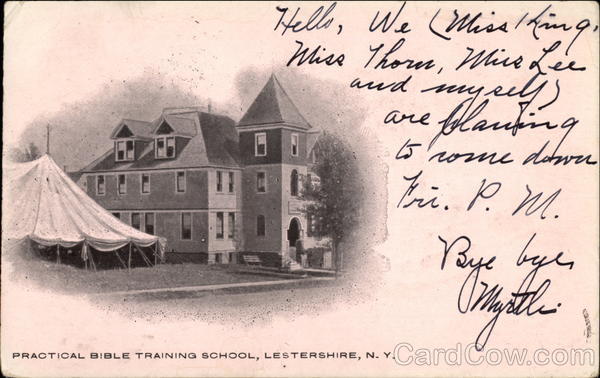 Hello, We (Miss King,
Miss Thorn, Miss Lee
and myself)
are planing
to come down
Fri. P. M.
Bye bye,
Myrtle.
PRACTICAL BIBLE TRAINING SCHOOL, LESTERSHIRE, N. Y.
CardCow.com